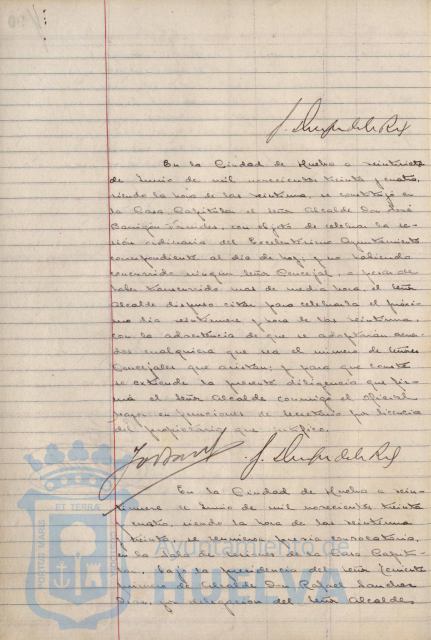 J. Duque de la Rex
En la Ciudad de Huelva a veintisiete
de Junio de mil novecientos treinta y cuatro,
siendo la hora de las veintiuna, se constituyó en
la Casa Capitular el señor Alcalde Don José
Barrigón Paredes, con objeto de celebrar la se-
sión ordinaria del Excelentísimo Ayuntamiento
correspondiente al día de hoy, y no habiendo
concurrido ningún señor Concejal, a pesar de
haber transcurrido mas de media hora el señor
Alcalde dispuso citar para celebrarla el próxi-
mo día veintinueve y hora de las veintiuna,
con la advertencia de que se adoptarán acuer-
dos cualquiera que sea el número de señores
Concejales que asistan; y para que conste
se extiende la presente diligencia que fir-
mará el señor Alcalde conmigo el oficial
mayor en funciones de secretario por licencia
del propietario que certifico.
J. Duque de la Rex
En la Ciudad de Huelva a vein-
tinueve de Junio de mil novecientos treinta
y cuatro siendo la hora de las veintiuna
y treinta, se reunieron previa convocatoria,
en la Sala de Sesiones de la Casa Capitu-
lar, bajo la presidencia del señor Teniente
primero de Alcalde Don Rafael Sanchez
Diaz, por delegación del señor Alcalde
PORTUS MARIS
ET TERRA
Ayuntamiento de
HUELVA